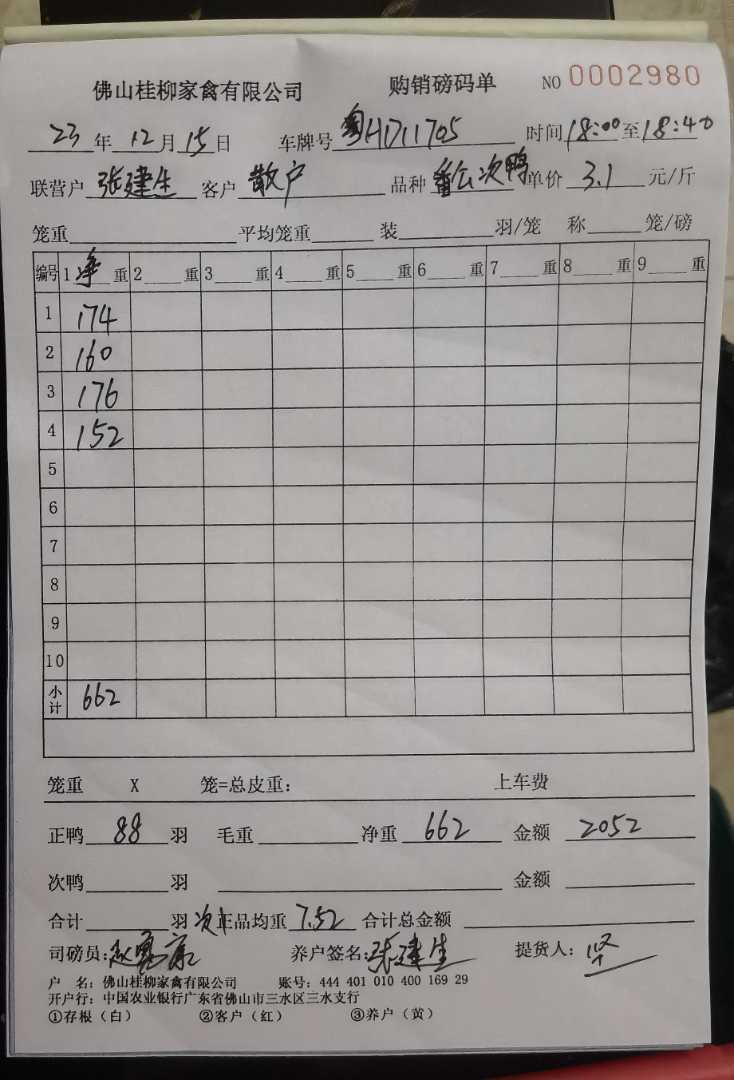 佛山桂柳家禽有限公司 购销磅码单 NO 0002980
23年12月15日 车牌号 粤HD11705 时间18:00至18:40
联营户 张建生 客户 散户 品种 番公次鸭 单价 3.1 元/斤
笼重 平均笼重 装 羽/笼 称 笼/磅
编号 1净重 2重 3重 4重 5重 6重 7重 8重 9重
1 174
2 160
3 176
4 152
5
6
7
8
9
10
小计 662
笼重 X 笼=总皮重: 上车费
正鸭 88 羽 毛重 净重 662 金额 2052
次鸭 羽 金额
合计 羽 次正品均重 7.52 合计总金额
司磅员: 养户签名: 张建生 提货人: 坚
户 名: 佛山桂柳家禽有限公司 账号: 444 401 010 400 169 29
开户行: 中国农业银行广东省佛山市三水区三水支行
①存根(白) ②客户(红) ③养户(黄)